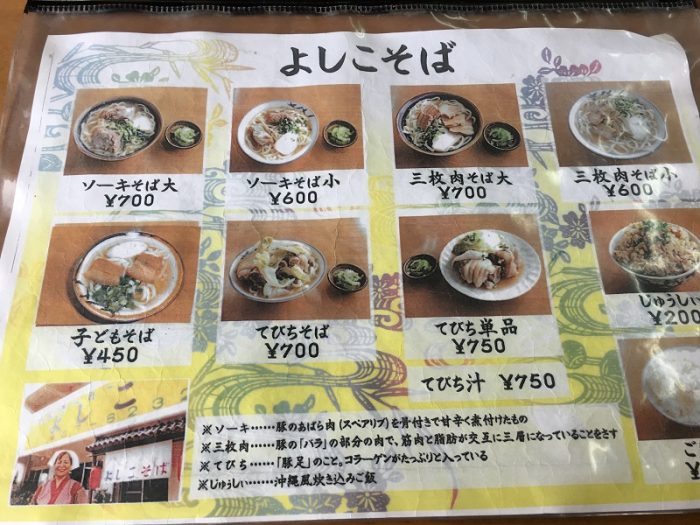 よしこそば
ソーキそば大
¥700
ソーキそば小
¥600
三枚肉そば大
¥700
三枚肉そば小
¥600
子どもそば
¥450
てびちそば
¥700
てびち単品
¥750
じゅうしい
¥200
てびち汁 ¥750
よしこ
よしこそば
※ソーキ……豚のあばら肉(スペアリブ)を骨付きで甘辛く煮付けたもの
※三枚肉……豚の「バラ」の部分の肉で、筋肉と脂肪が交互に三層になっていることをさす
※てびち……「豚足」のこと。コラーゲンがたっぷりと入っている
※じゅうしい……沖縄風炊き込みご飯
ご